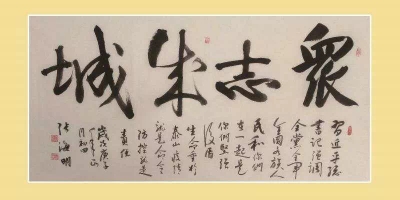 眾志成城
習近平總
書記強調
全黨全軍
全國各族人
民和你們
在一起是
你們堅強
後盾
生命重於
泰山疫情
就是命令
防控就是
責任
庚子
月初四
張海明